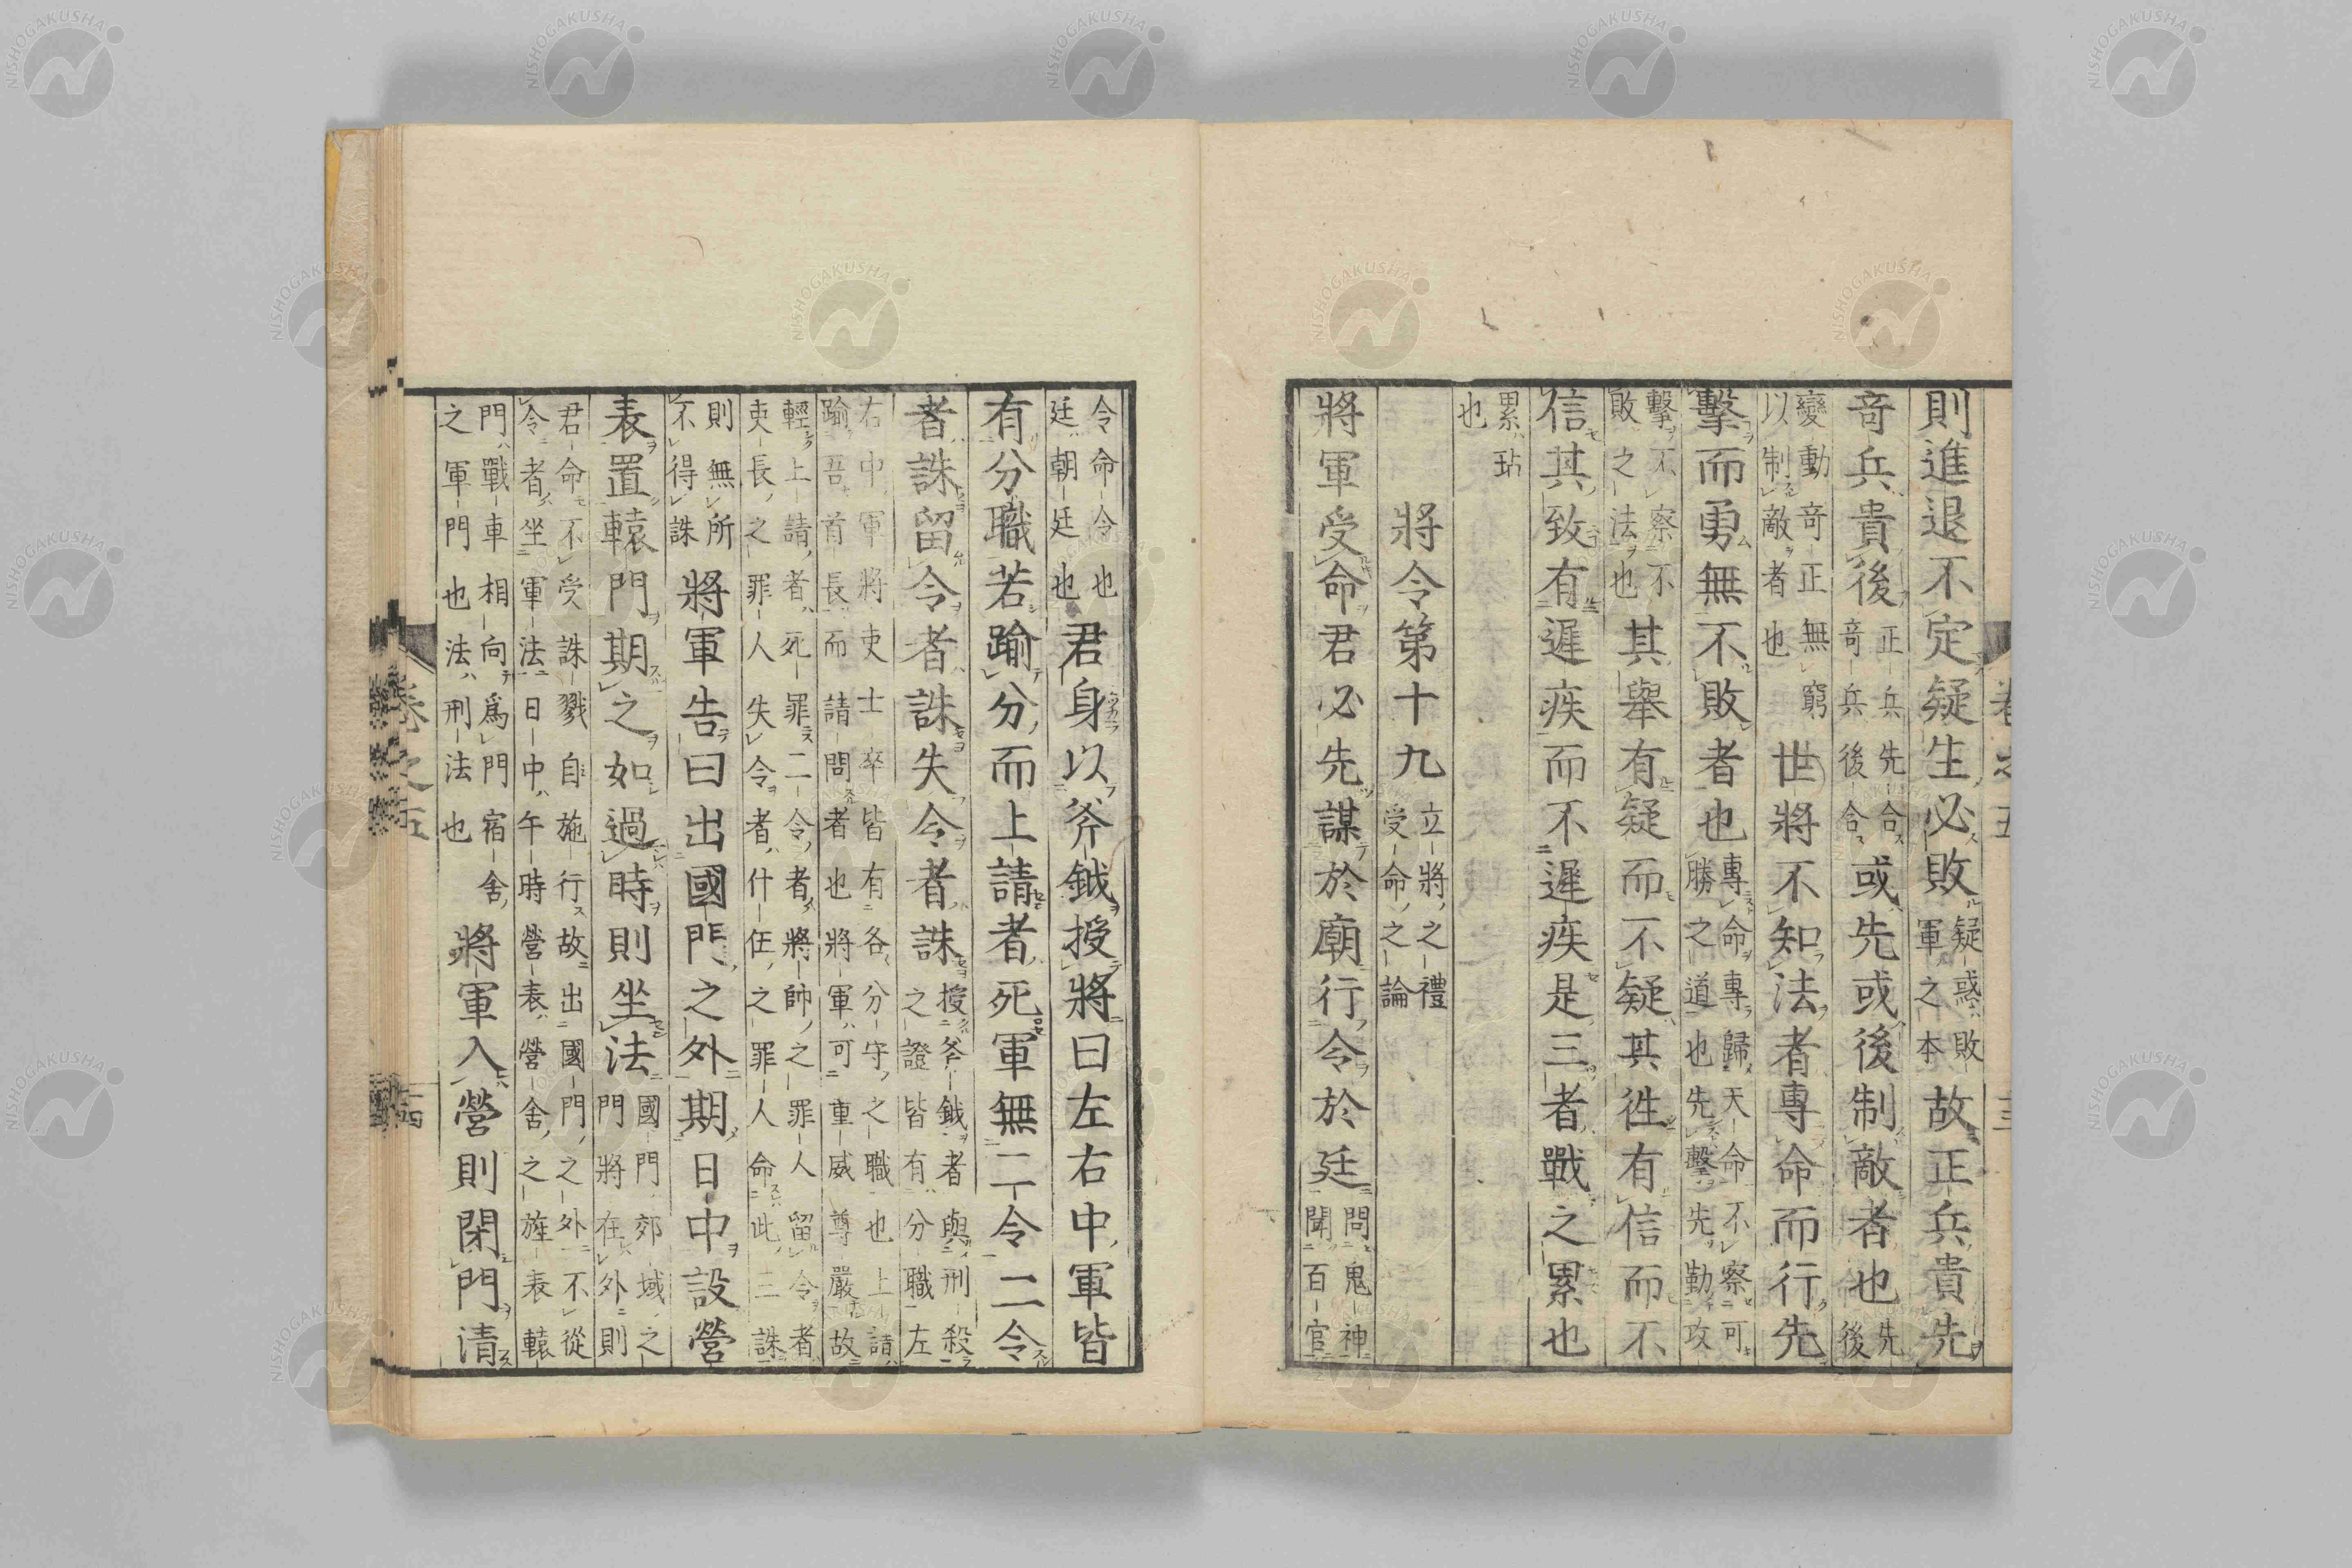 則進退不定疑生必敗疑惑敗軍之本故正兵貴先
竒兵貴後正兵先合竒兵後合或先或後制敵者也先後
變動竒正無窮以制敵者也世將不知法者專命而行先
擊而勇無不敗者也專命專歸天命不察可勝之道也先擊先勤攻
擊不察不敗之法也其舉有疑而不疑其徃有信而不
信其致有遲疾而不遲疾是三者戰之累也
累玷也
將令第十九立將之禮受命之論
將軍受命君必先謀於廟行令於廷問鬼神聞百官
令命令也廷朝廷也君身以斧鉞授將曰左右中軍皆
有分職若踰分而上請者死軍無二令二令
者誅留令者誅失令者誅授斧鉞者與刑殺之證皆有分職左
右中軍將吏士卒皆有各分守之職也上請踰吾首長而請問者也將軍可重威尊嚴故
輕上請者死罪二令者將帥之罪人留令者吏長之罪人失令者什伍之罪人命此三誅
則無所不得誅將軍告曰出國門之外期日中設營
表置轅門期之如過時則坐法國門郊域之門將在外則
君命不受誅戮自施行故出國門之外不從令者坐軍法日中午時營表營舍之旌表轅
門戰車相向爲門宿舍之軍門也法刑法也將軍入營則閉門清
卷之五
十四